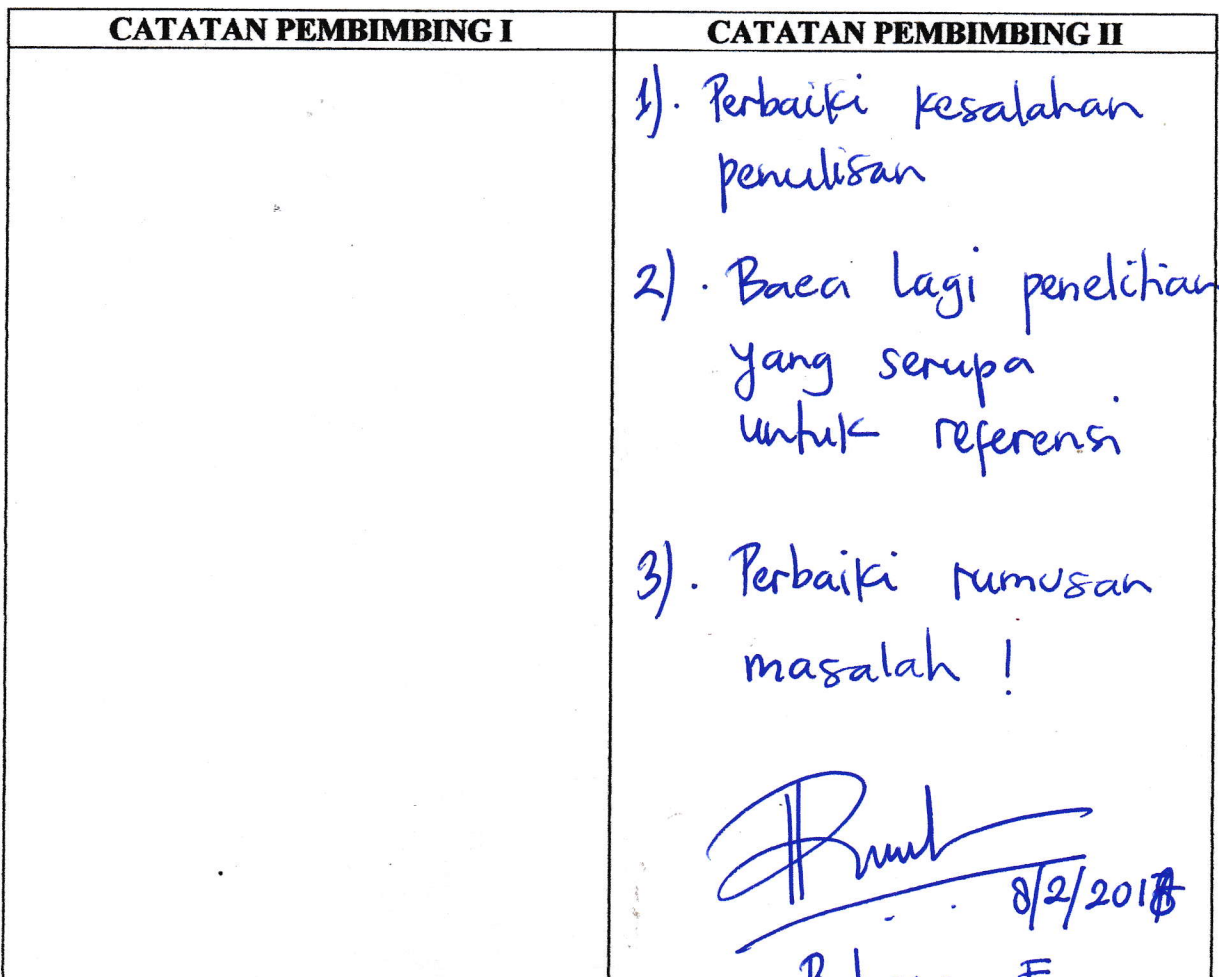 CATATAN PEMBIMBING I
CATATAN PEMBIMBING II
1). Perbaiki kesalahan
penulisan
2). Baca lagi penelitian
yang serupa
untuk referensi
3). Perbaiki rumusan
masalah !